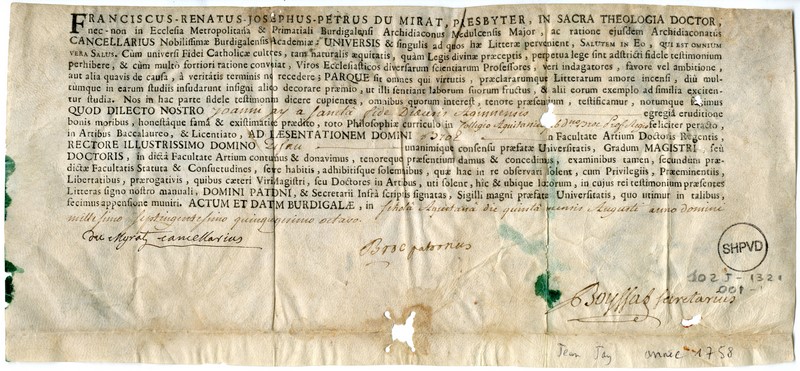 FRANCISCUS-RENATUS-JOSEPHUS-PETRUS DU MIRAT, PRESBYTER, IN SACRA THEOLOGIA DOCTOR,
nec-non in Ecclesia Metropolitana & Primatiali Burdigalensi Archidiaconus Medulcensis Major, ac ratione ejusdem Archidiaconatus
CANCELLARIUS Nobilissimæ Burdigalensis Academiæ: UNIVERSIS & singulis ad quos hæ Litteræ pervenient, SALUTEM IN EO, QUI EST OMNIUM
VERA SALUS. Cum universi Fidei Catholicæ cultores, tam naturalis æquitatis, quàm Legis divinæ præceptis, perpetua lege sint adstricti fidele testimonium
perhibere, & cùm multò fortiori ratione conveniat, Viros Ecclesiasticos diversarum scientiarum Professores, veri indagatores, favore vel ambitione,
aut alia quavis de causa, à veritatis terminis non recedere; PARQUE sit omnes qui virtutis, præclararumque Litterarum amore incensi, diù mul-
tumque in earum studiis insudarunt insigni alico decorare præmio, ut illi sentiant laborum suorum fructus, & alii eorum exemplo ad similia exciten-
tur studia. Nos in hac parte fidele testimonium dicere cupientes, omnibus quorum interest, tenore præsentium, testificamur, notumque facimus
QUOD DILECTO NOSTRO Joanni ay a Sancta fide Diecesis Aginnensis egregiâ eruditione
bonis moribus, honestâque famâ & existimatione prædito, toto Philosophiæ curriculo in Collegio Aquitanico feliciter peracto,
in Artibus Baccalaureo, & Licentiato, AD PRÆSENTATIONEM DOMINI Broc in Facultate Artium Doctoris Regentis,
RECTORE ILLUSTRISSIMO DOMINO unanimique consensu præfatæ Universitatis, Gradum MAGISTRI, seu
DOCTORIS, in dictâ Facultate Artium contulimus & donavimus, tenoreque præsentium damus & concedimus, examinibus tamen, secundum præ-
dictæ Facultatis Statuta & Consuetudines, ritè habitis, adhibitisque solemnibus, quæ hac in re observari solent, cum Privilegiis, Præeminentiis,
Libertatibus, prærogativis, quibus cæteri Viri Magistri, seu Doctores in Artibus, uti solent, hic & ubique locorum, in cujus rei testimonium præsentes
Litteras signo nostro manuali, DOMINI PATRONI, & Secretarii infrà scriptis signatas, Sigilli magni præfatæ Universitatis, quo utimur in talibus,
fecimus appensione muniri. ACTUM ET DATUM BURDIGALÆ, in scholâ Aquitanicâ die quintâ mensis Augusti anno domini
millesimo septingentesimo quinquagesimo octavo.
Du Myrat cancellarius
Broc patronus
SHPVD
102 J - 132
001 -
Boyssat secretarius
Jean Jay année 1758